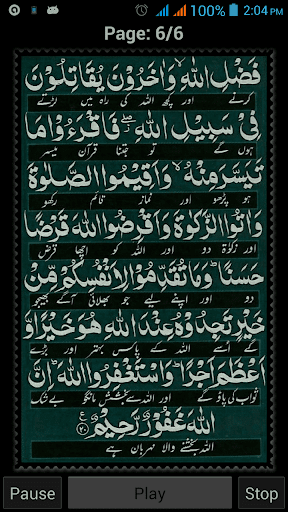 100% 2:04 PM
Page: 6/6
فَضْلِ اللّٰهِ ۙ وَاٰخَرُوْنَ يُقَاتِلُوْنَ
کرنے اور کچھ اللہ کی راہ میں لڑتے
فِيْ سَبِيْلِ اللّٰهِ ۖ فَاقْرَءُوْا مَا
ہوں گے تو جتنا قرآن میسر
تَيَسَّرَ مِنْهُ ۙ وَاَقِيْمُوا الصَّلٰوةَ
ہو پڑھو اور نماز قائم رکھو
وَاٰتُوا الزَّكٰوةَ وَاَقْرِضُوا اللّٰهَ قَرْضًا
اور زکوٰۃ دو اور اللہ کو اچھا قرض
حَسَنًا ؕ وَمَا تُقَدِّمُوْا لِاَنْفُسِكُمْ مِّنْ
دو اور اپنے لیے جو بھلائی آگے بھیجو
خَيْرٍ تَجِدُوْهُ عِنْدَ اللّٰهِ هُوَ خَيْرًا وَّ
گے اُسے اللہ کے پاس بہتر اور بڑے
اَعْظَمَ اَجْرًا ؕ وَاسْتَغْفِرُوا اللّٰهَ ؕ اِنَّ
ثواب کی پاؤ گے اور اللہ سے بخشش مانگو بے شک
اللّٰهَ غَفُوْرٌ رَّحِيْمٌ ۲۰ ع
اللہ بخشنے والا مہربان ہے
Pause Play Stop